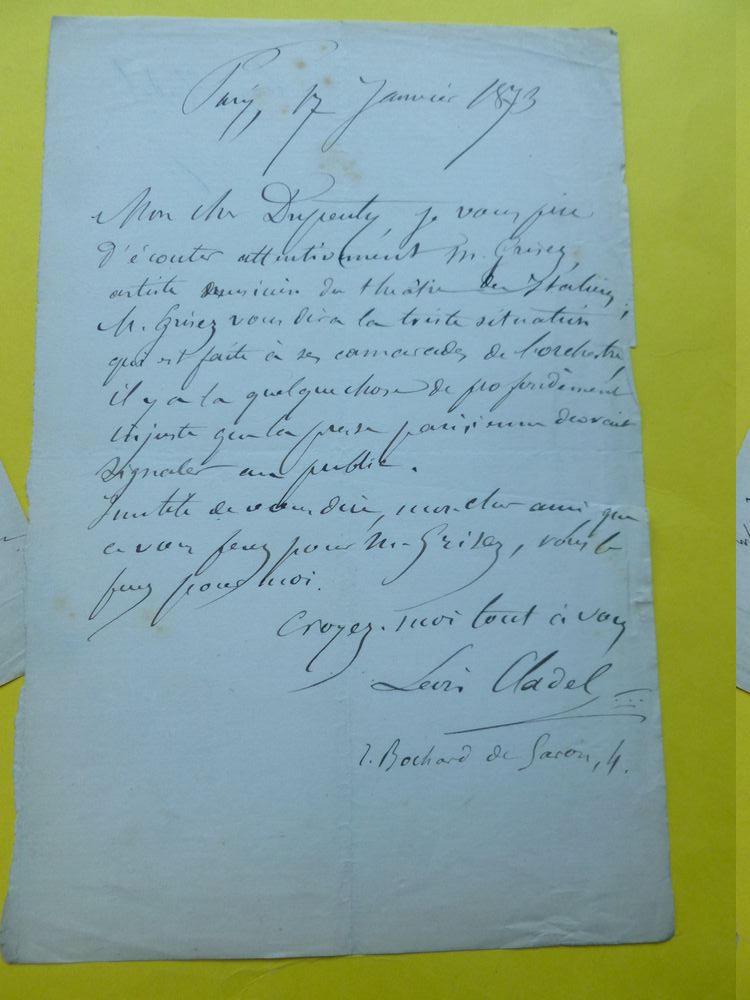 Paris, 17 Janvier 1873
Mon cher Dupeuty je vous prie
d'écouter attentivement M. Grisez,
artiste musicien du théâtre des Italiens;
M. Grisez vous dira la triste situation
qui est faite à ses camarades de l'orchestre,
il y a là quelque chose de profondément
injuste que la presse parisienne devrait
signaler au public.
Inutile de vous dire, mon cher ami que
ce vous ferez pour M. Grisez, vous le
ferez pour moi.
Croyez-moi tout à vous
Léon Cladel
r. Bochard de Saron, 4.